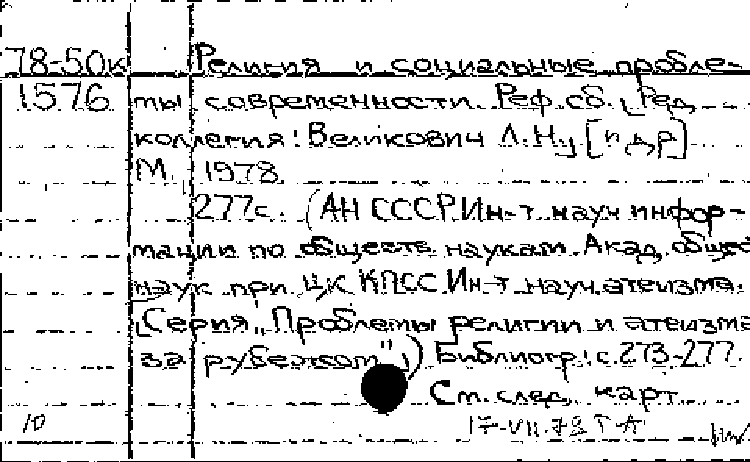 78-50к Религия и социальные пробле-
1576 мы современности. Реф. сб. [Ред.
коллегия: Великович Л.Н., [и др]
М. 1978
277с. (АН СССР. Ин-т науч информ-
мации по обществ наукам. Акад. общес
наук при ЦК КПСС. Ин-т науч. атеизма.
[Серия „Проблемы религии и атеизма
за рубежом",) Библиогр: с. 273-277.
См. след. карт.
10 17-VII.78